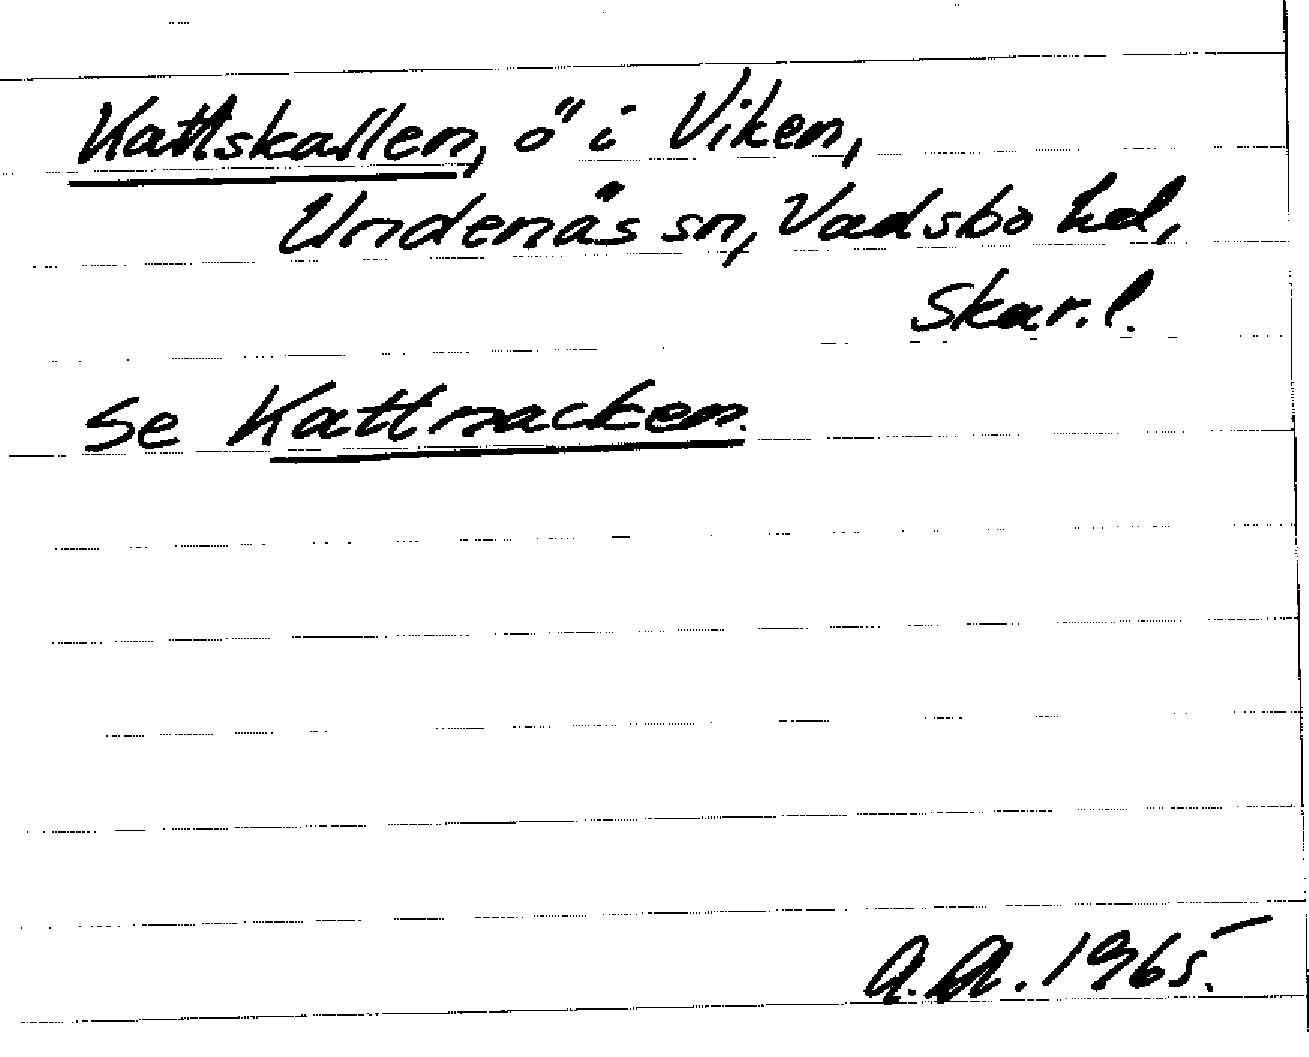 Kattskallen, ö i Viken,
Undenäs sn, Vadsbo hd,
Skar. l.
Se Kattnacken.
A.A. 1965.